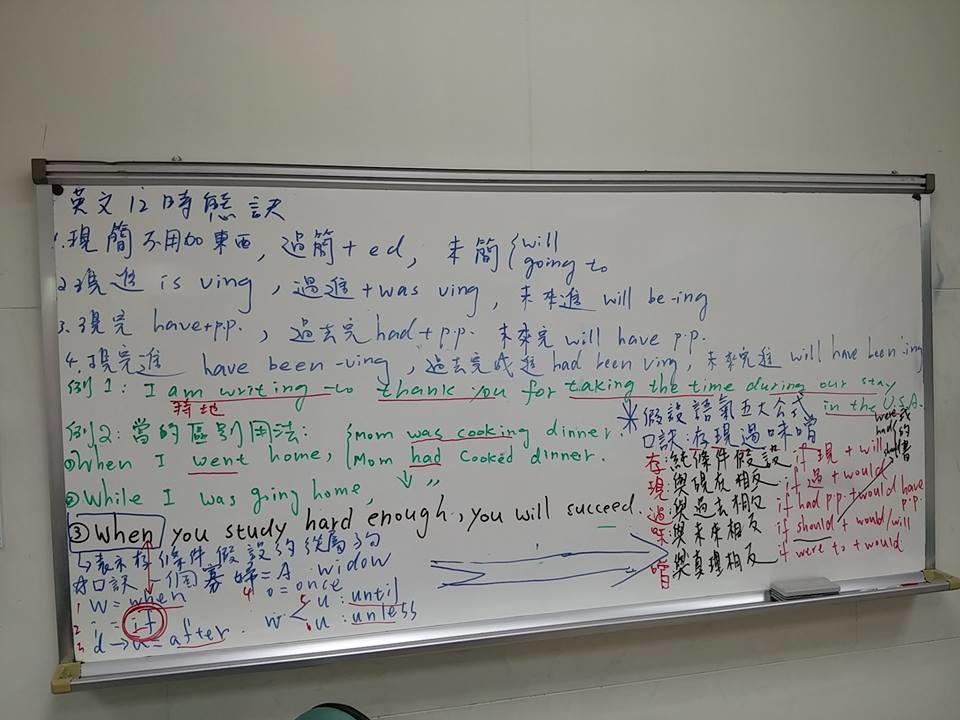 英文12時態訣
1.現簡不用加東西, 過簡+ed, 未簡{will
going to
2.現進 is ving, 過進+was ving, 未來進 will be -ing
3.現完 have+p.p., 過去完had+p.p. 未來完 will have p.p.
4.現完進 have been -ving, 過去完成進had been ving, 未來完進 will have been -ing
例1: I am writing to thank you for taking the time during our stay
特地
in the U.S.A.
例2:當的區別用法:
①When I went home, {Mom was cooking dinner.
Mom had cooked dinner.
②While I was going home, ↓ 〃
③When you study hard enough, you will succeed.
↳表示存條件假設的從屬句
口訣一個寡婦=A widow
1 w=when
2 i=if
3 d→a=after
4 o=once
w<
5 u:until
u:unless
*假設語氣五大公式
口訣:存現過味嚐
存:純條件假設 if 現+will
現:與現在相反 if 過+would
過:與過去相反 if had p.p.+would have p.p.
味:與未來相反 if should+would/will
嚐:與真理相反 if were to+would
were
had
should